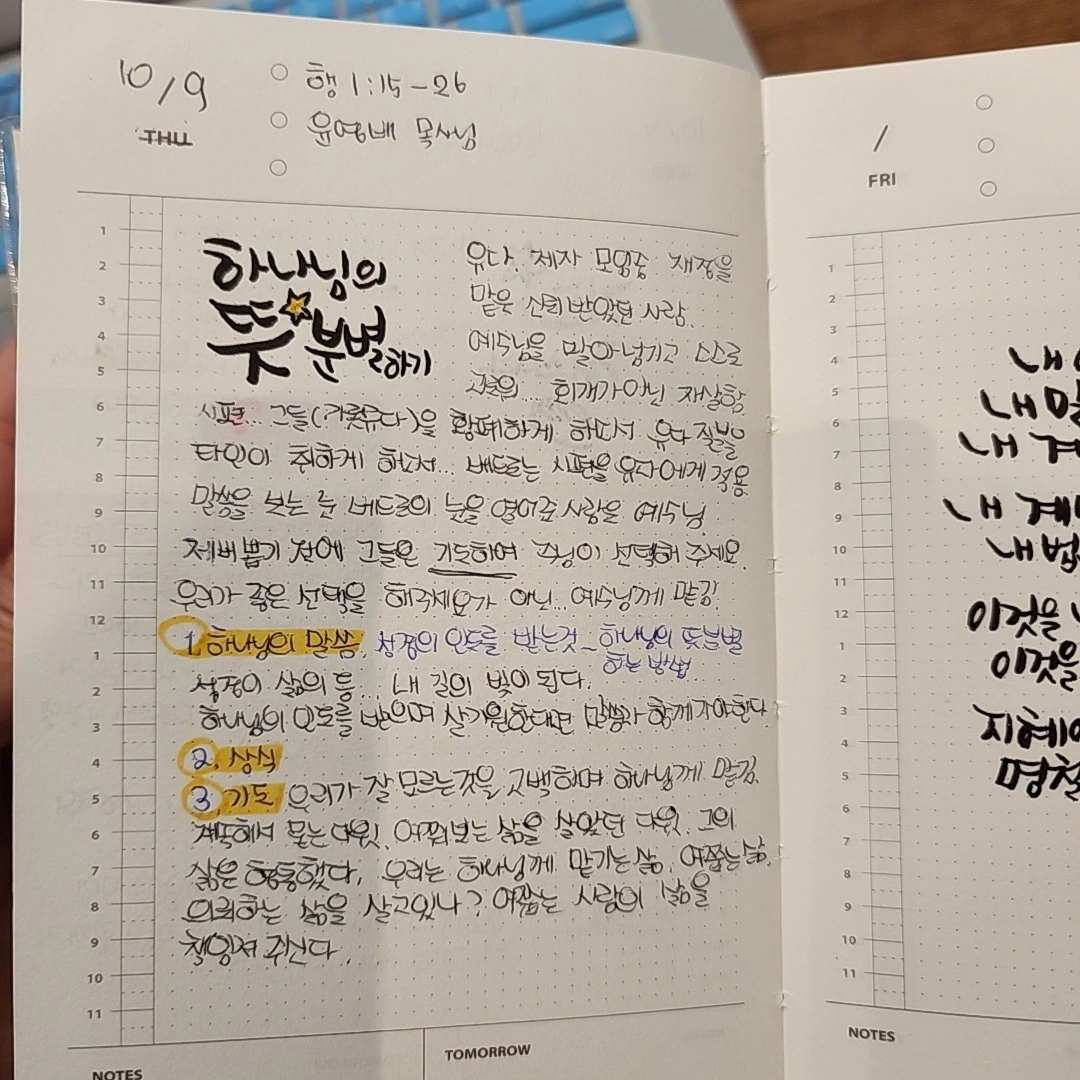 10/9
THU
행 1:15-26
윤영배 목사님
하나님의
뜻 분별하기
유다. 제자 모임중 재정을
맡은 신뢰받았던 사람.
예수님을 팔아넘기고 스스로
... 회개가 아닌 자살함.
시편... 그들(가룟유다)을 황폐하게 하며서 유다 직분을
타인이 취하게 하며서... 베드로는 시편을 유다에게 적용
말씀을 보는 눈 베드로의 눈을 열어준 사람은 예수님
제비뽑기 전에 그들은 기도하며 주님이 선택해 주세요.
우리가 좋은 선택을 해주세요가 아닌... 예수님께 맡김.
1. 하나님의 말씀. 성경의 인도를 받는것 - 하나님의 뜻분별
하는 방법
성경이 삶의 등... 내 길의 빛이 된다.
하나님의 인도를 받으며 살기원한다면 말씀과 함께 가야한다
2. 상식
3. 기도 우리가 잘 모르는것을 고백하며 하나님께 맡김.
계속해서 묻는 다윗. 여쭤보는 삶을 살았던 다윗. 그의
삶은 형통했다. 우리는 하나님께 맡기는 삶. 여쭙는 삶.
의뢰하는 삶을 살고있나? 여쭙는 사람의 삶을
책임져 주신다.
NOTES
TOMORROW
/
FRI
내
내
내 계
내 계
내 법
이것을
이것을
지혜
명철
NOTES
1
2
3
4
5
6
7
8
9
10
11
12
1
2
3
4
5
6
7
8
9
10
11